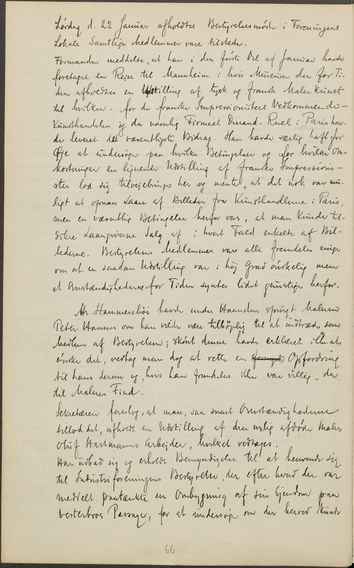 Lørdag d. 22 Januar afholdtes Bestyrelsesmøde i Foreningens
Lokale. Samtlige Medlemmer vare tilstede.
Formanden meddelte, at han i den første Del af Januar havde
foretaget en Rejse til Mannheim i hvis Museum der for Ti-
den afholdtes en Udstilling af tysk og fransk Malerkunst
til hvilken – for de franske Impressionisters Vedkommende –
Kunsthandelen og da navnlig Firmaet Durand-Ruel i Paris hav-
de leveret det væsentligste Bidrag. Han havde særlig haft for
Øje at undersøge paa hvilke Betingelser og for hvilke Om-
kostninger en lignende Udstilling af franske Impressioni-
ster lod sig tilvejebringe her og mente, at det nok var mu-
ligt at opnaa Laan af Billeder fra Kunsthandlerne i Paris,
men en væsentlig Betingelse herfor var, at man kunde til-
sikre Laangiverne Salg af i hvert Fald enkelte af Bil-
lederne. Bestyrelsens Medlemmer var alle fremdeles enige
om at en saadan Udstilling var i høj Grad ønskelig men
at Omstændighederne for Tiden syntes lidet gunstige herfor.
Hr. Hammershøi havde under Haanden spurgt Maleren
Peter Hansen om han vilde være tilbøjelig til at indtræde som
Medlem af Bestyrelsen; skønt denne havde erklæret ikke at
ønske det, vedtog man dog at rette en Opfordring
til ham derom og, hvis han fremdeles ikke var villig, da
til Maleren Find.
Sekretæren foreslog, at man, saa snart Omstændighederne
tillod det, afholdt en Udstilling af den nylig afdøde Maler
Oluf Hartmanns Arbejder, hvilket vedtoges.
Han udbad sig og erholdt Bemyndigelse til at henvende sig
til Industriforeningens Bestyrelse, der efter hvad der var
meddelt paatænkte en Ombygning af sin Ejendom paa
Vesterbros Passage, for at undersøge om der herved kunde
66